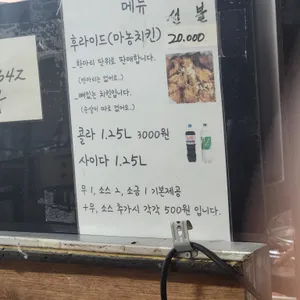 메뉴 선불
후라이드(마농치킨) 20.000
_한마리 단위로 판매합니다.
(반마리는 없어요.)
_뼈있는 치킨입니다.
(순살이 따로 없어요.)
콜라 1.25L 3000원
사이다 1.25L
무 1, 소스 2, 소금 1 기본제공
+무, 소스 추가시 각각 500원 입니다.
642